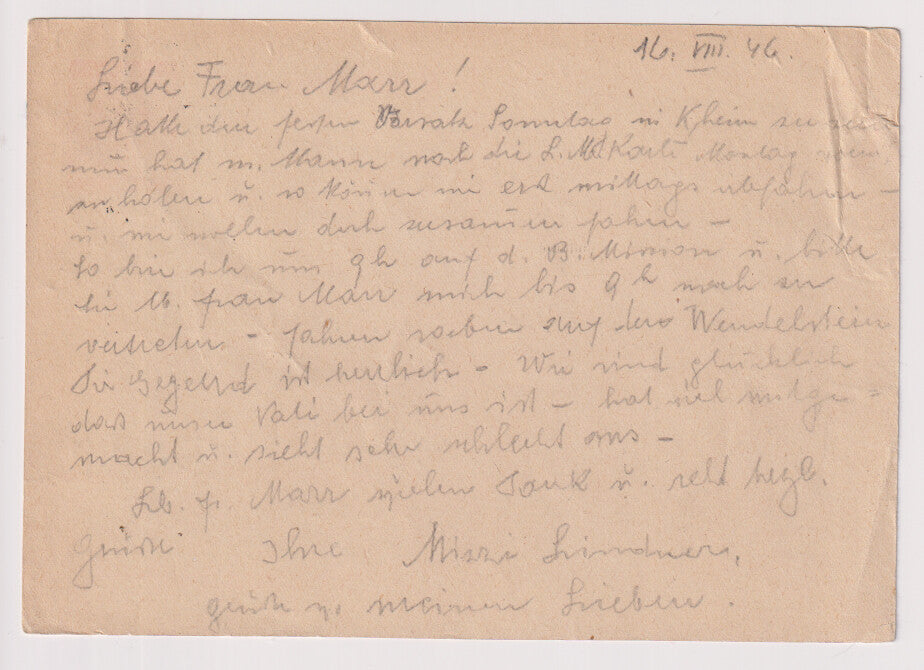 16. VIII. 46.
Liebe Frau Marr!
Hatte den festen Vorsatz Sonntag in K'heim zu sein
nun hat m. Mann noch die L.M.Karte Montag
zu holen u. so können wir erst mittags abfahren –
u. wir wollen doch zusammen fahren –
So bin ich um 9h auf d. B. Mission u. bitte
Sie lb. Frau Marr mich bis 9h noch zu
vertreten – fahren soeben auf den Wendelstein
Die Gegend ist herrlich – Wir sind glücklich
daß unser Vati bei uns ist – hat viel mitge=
macht u. sieht sehr schlecht aus –
Lb. Fr. Marr vielen Dank u. recht herzl.
Grüße Ihre Mizzi Lindner,
Grüße v. meinen Lieben.